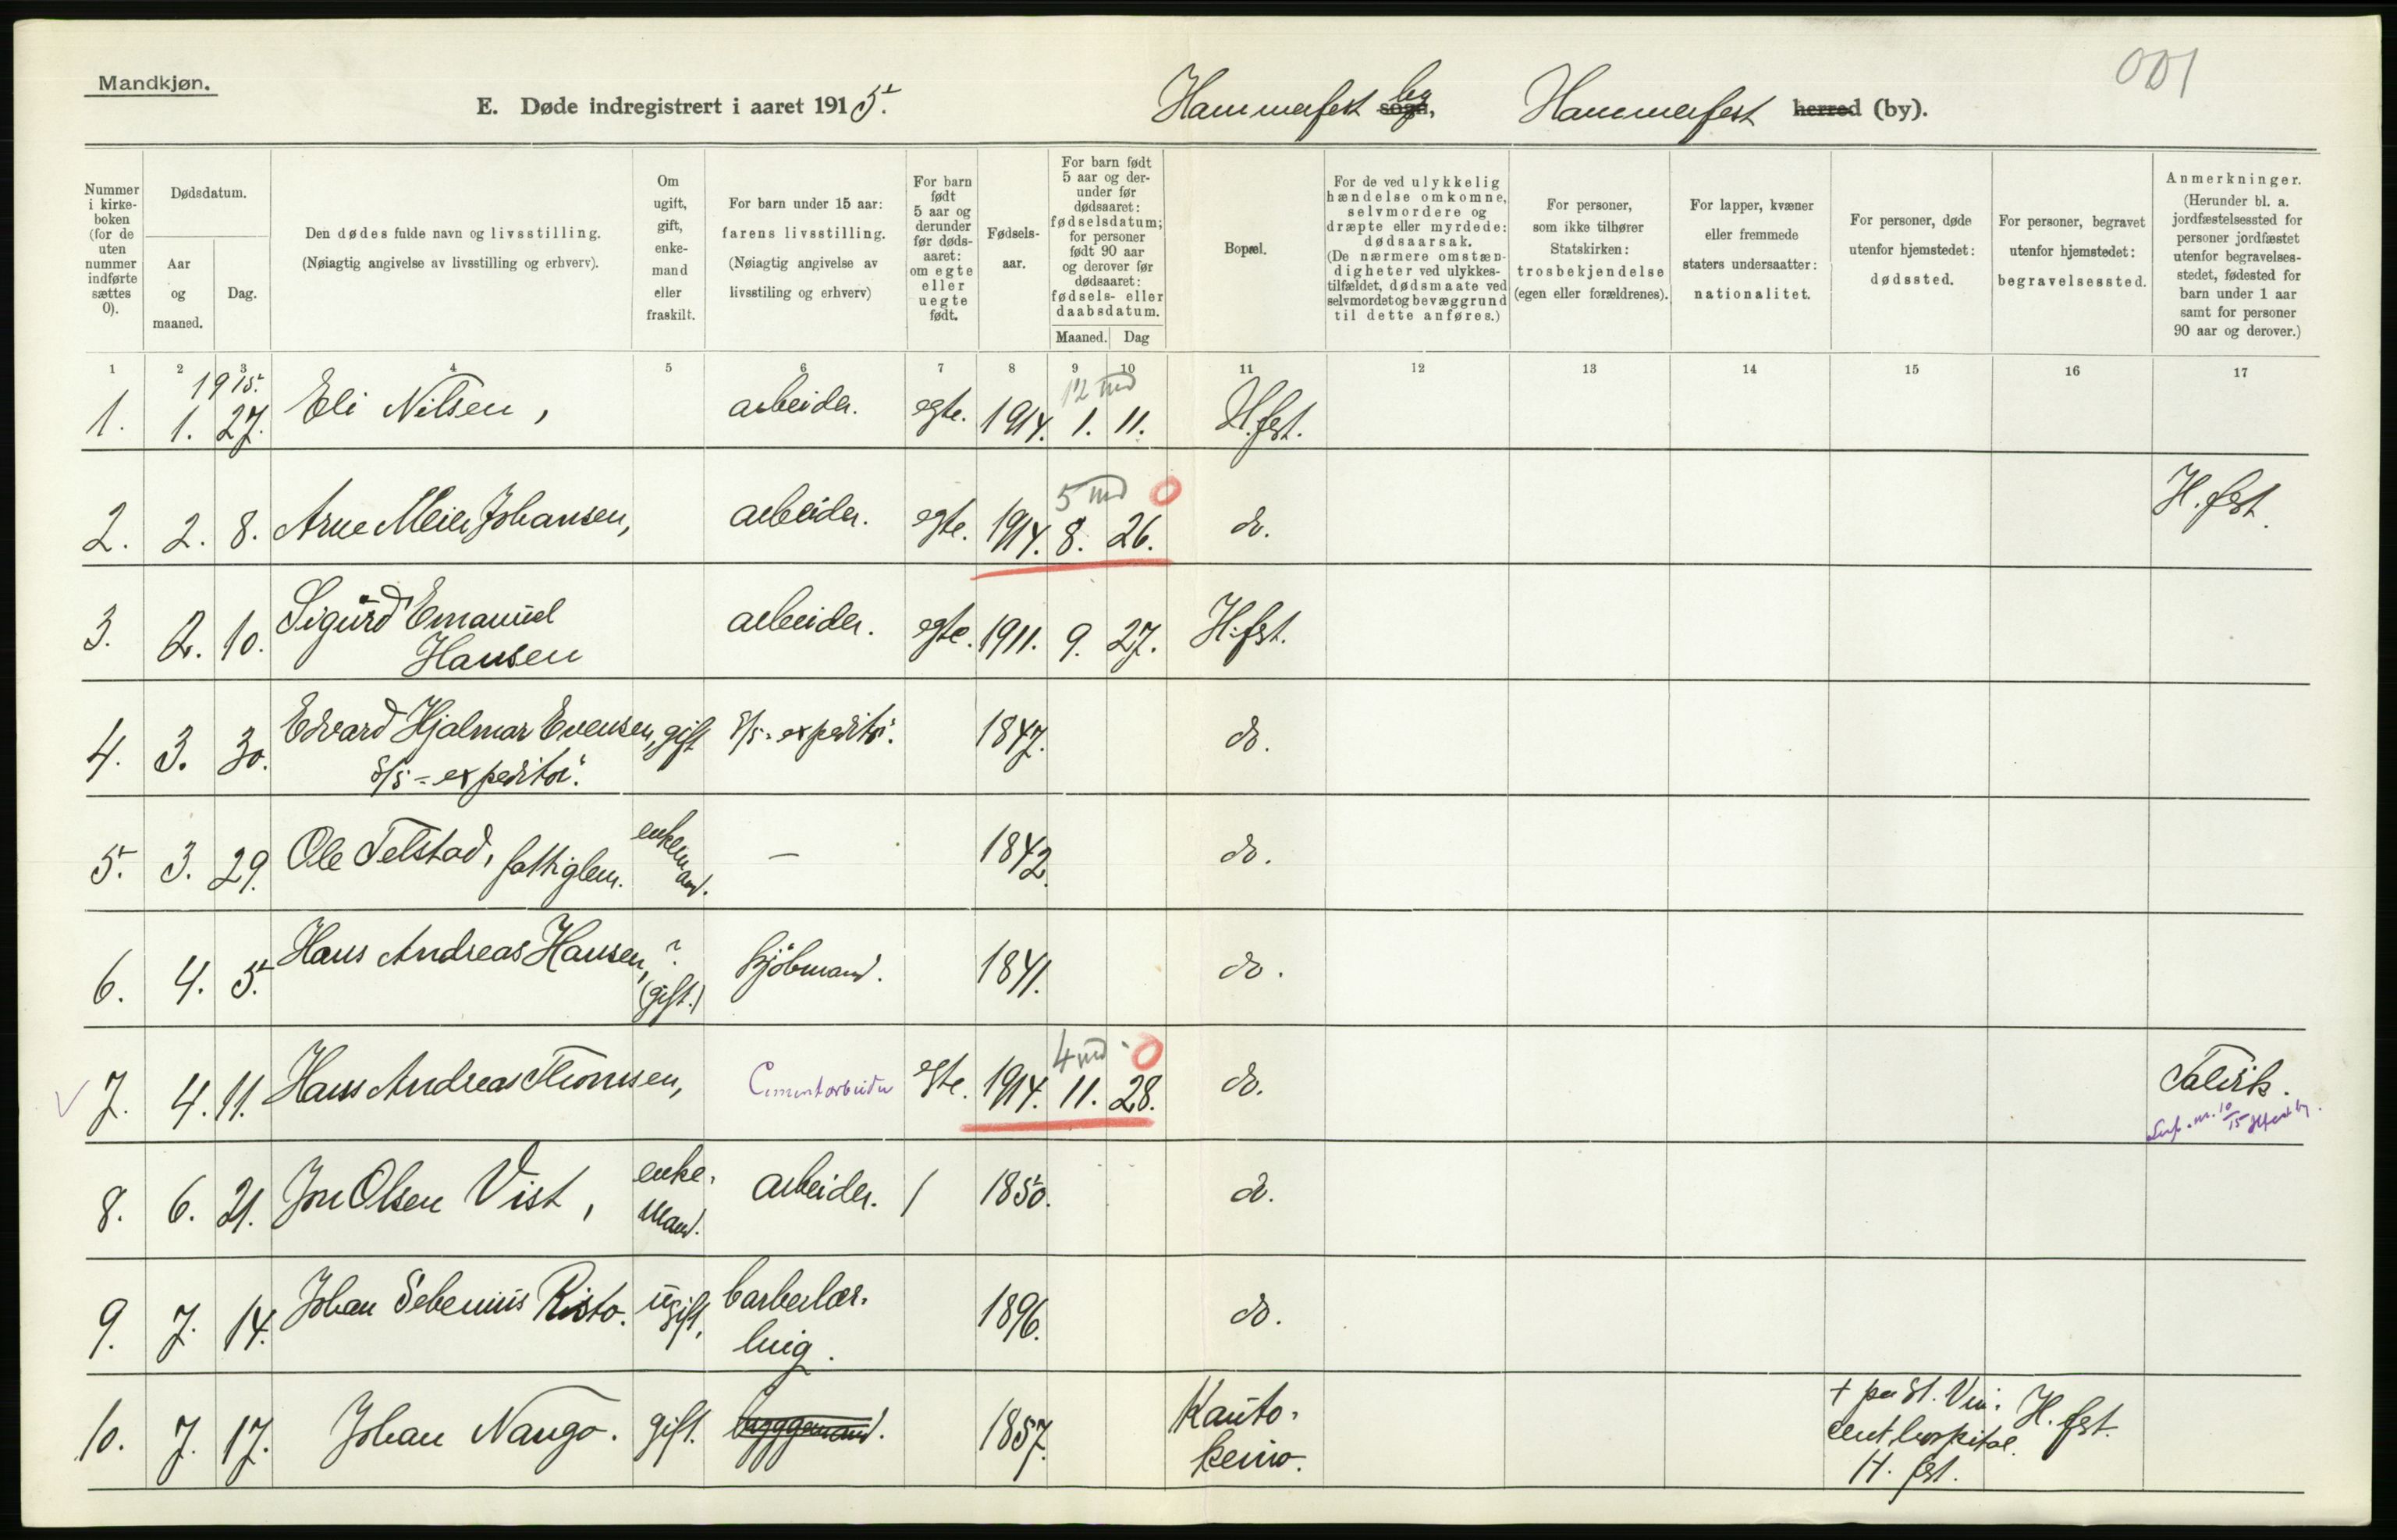 Mandkjøn.
001
E. Døde indregistrert i aaret 1915.
Hammerfest sogn, by Hammerfest herred (by).
Nummer i kirkeboken (for de uten nummer indførte sættes 0).
Dødsdatum.
Aar og maaned.
Dag.
Den dødes fulde navn og livsstilling.
(Nøiagtig angivelse av livsstilling og erhverv).
Om ugift, gift, enkemand eller fraskilt.
For barn under 15 aar: farens livsstilling.
(Nøiagtig angivelse av livsstiling og erhverv)
For barn født 5 aar og derunder før dødsaaret: om egte eller uegte født.
Fødselsaar.
For barn født 5 aar og derunder før dødsaaret: fødselsdatum; for personer født 90 aar og derover før dødsaaret: fødsels- eller daabsdatum.
Maaned. Dag
Bopæl.
For de ved ulykkelig hændelse omkomne, selvmordere og dræpte eller myrdede: dødsaarsak.
(De nærmere omstændigheter ved ulykkestilfældet, dødsmaate ved selvmordet og bevæggrund til dette anføres.)
For personer, som ikke tilhører Statskirken: trosbekjendelse (egen eller forældrenes).
For lapper, kvæner eller fremmede staters undersaatter: nationalitet.
For personer, døde utenfor hjemstedet: dødssted.
For personer, begravet utenfor hjemstedet: begravelsessted.
Anmerkninger.
(Herunder bl. a. jordfæstelsessted for personer jordfæstet utenfor begravelsesstedet, fødested for barn under 1 aar samt for personer 90 aar og derover.)
1 2 3 4 5 6 7 8 9 10 11 12 13 14 15 16 17
1915. 12 md
1. 1. 27. Eli Nilsen, arbeider. egte. 1914. 1. 11. H.fest.
5 md 0
2. 2. 8. Arne Meier Johansen, arbeider. egte. 1914. 8. 26. do. H. fest.
3. 2. 10. Sigurd Emanuel Hansen arbeider. egte. 1911. 9. 27. H.fest.
4. 3. 30. Edvard Hjalmar Evensen, gift s/s=expeditør. 1847. do.
s/s=expeditør.
5. 3. 29. Ole Telstad, fattiglem. enkemand. — 1842. do.
6. 4. 5. Hans Andreas Hansen, ? (gift.) kjøbmand. 1841. do.
4 md 0
7. 4. 11. Hans Andreas Thomsen, Cementarbeider egte. 1914. 11. 28. do. Talvik.
8. 6. 21. Jon Olsen Vist, enkemand. arbeider. / 1850. do.
9. 7. 14. Johan Sebenius Risto. ugift, barberlærling. 1896. do.
10. 7. 17. Johan Nango. gift. byggemand. 1857. Kautokeino. + paa St. Vincent hospital. H. fest. H. fest.